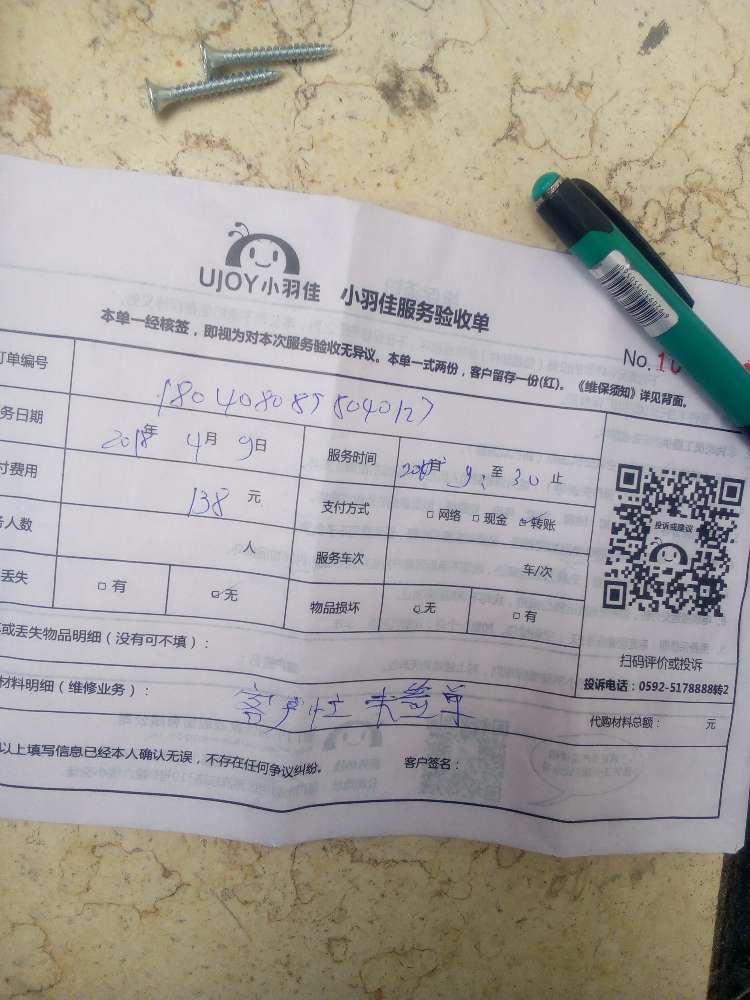 UJOY小羽佳 小羽佳服务验收单
本单一经核签，即视为对本次服务验收无异议。本单一式两份，客户留存一份(红)。《维保须知》详见背面。
No.10
订单编号 1804080858040127
务日期 2018年 4月 9日 服务时间 9: 至 30 止
付费用 138 元 支付方式 □ 网络 □ 现金 ☑ 转账
人数 人 服务车次 车/次
丢失 □ 有 ☑ 无 物品损坏 ☑ 无 □ 有
投诉或建议
扫码评价或投诉
投诉电话：0592-5178888转2
或丢失物品明细（没有可不填）：
材料明细（维修业务）： 客户忙 未签单
代购材料总额： 元
以上填写信息已经本人确认无误，不存在任何争议纠纷。 客户签名：